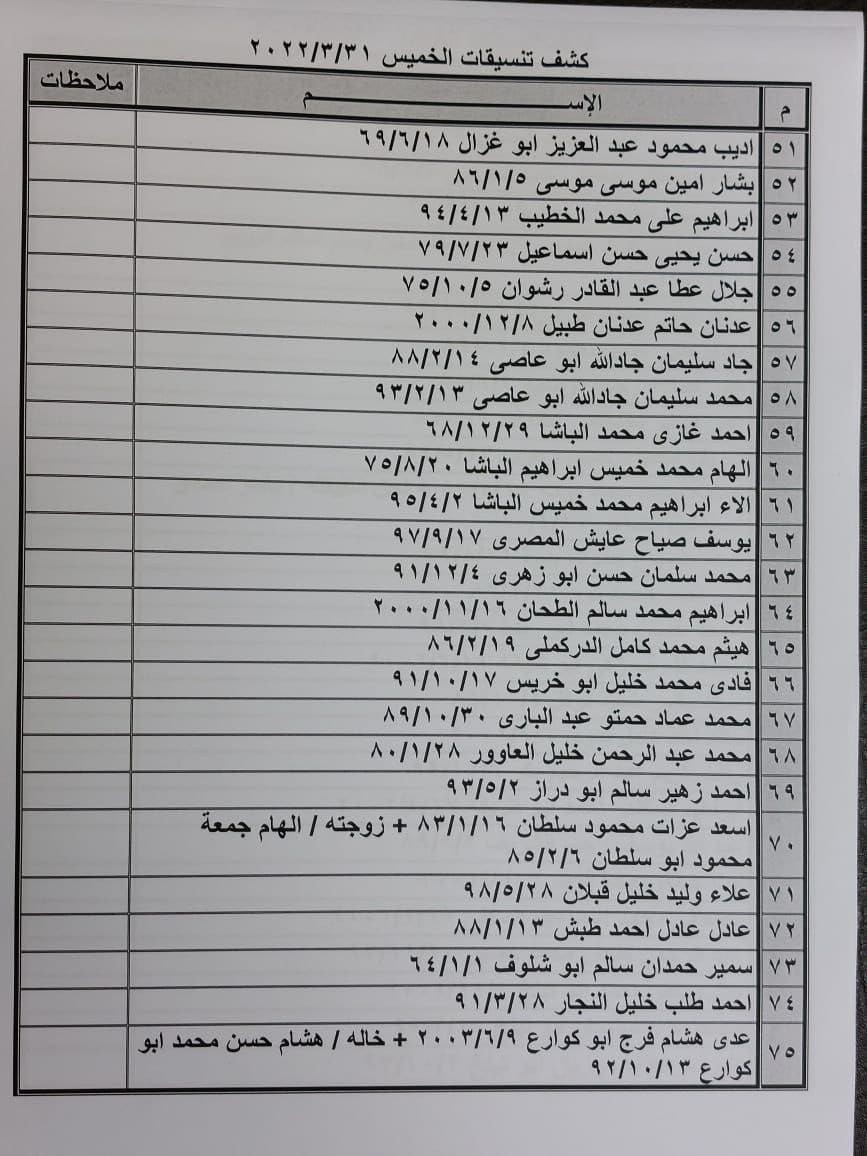 كشف تنسيقات الخميس ٢٠٢٢/٣/٣١
م الإســـــــم ملاحظات
٥١ اديب محمود عبد العزيز ابو غزال ٦٩/٦/١٨
٥٢ بشار امين موسى موسى ٨٦/١/٥
٥٣ ابراهيم على محمد الخطيب ٩٤/٤/١٣
٥٤ حسن يحيى حسن اسماعيل ٧٩/٧/٢٣
٥٥ جلال عطا عبد القادر رشوان ٧٥/١٠/٥
٥٦ عدنان حاتم عدنان طبيل ٢٠٠٠/١٢/٨
٥٧ جاد سليمان جادالله ابو عاصى ٨٨/٢/١٤
٥٨ محمد سليمان جادالله ابو عاصى ٩٣/٢/١٣
٥٩ احمد غازى محمد الباشا ٦٨/١٢/٢٩
٦٠ الهام محمد خميس ابراهيم الباشا ٧٥/٨/٢٠
٦١ الاء ابراهيم محمد خميس الباشا ٩٥/٤/٢
٦٢ يوسف صياح عايش المصرى ٩٧/٩/١٧
٦٣ محمد سلمان حسن ابو زهرى ٩١/١٢/٤
٦٤ ابراهيم محمد سالم الطحان ٢٠٠٠/١١/١٦
٦٥ هيثم محمد كامل الدركملى ٨٦/٢/١٩
٦٦ فادى محمد خليل ابو خريس ٩١/١٠/١٧
٦٧ محمد عماد حمتو عبد البارى ٨٩/١٠/٣٠
٦٨ محمد عبد الرحمن خليل العاوور ٨٠/١/٢٨
٦٩ احمد زهير سالم ابو دراز ٩٣/٥/٢
٧٠ اسعد عزات محمود سلطان ٨٣/١/١٦ + زوجته / الهام جمعة
محمود ابو سلطان ٨٥/٢/٦
٧١ علاء وليد خليل قبلان ٩٨/٥/٢٨
٧٢ عادل عادل احمد طبش ٨٨/١/١٣
٧٣ سمير حمدان سالم ابو شلوف ٦٤/١/١
٧٤ احمد طلب خليل النجار ٩١/٣/٢٨
٧٥ عدى هشام فرج ابو كوارع ٢٠٠٣/٦/٩ + خاله / هشام حسن محمد ابو
كوارع ٩٢/١٠/١٣